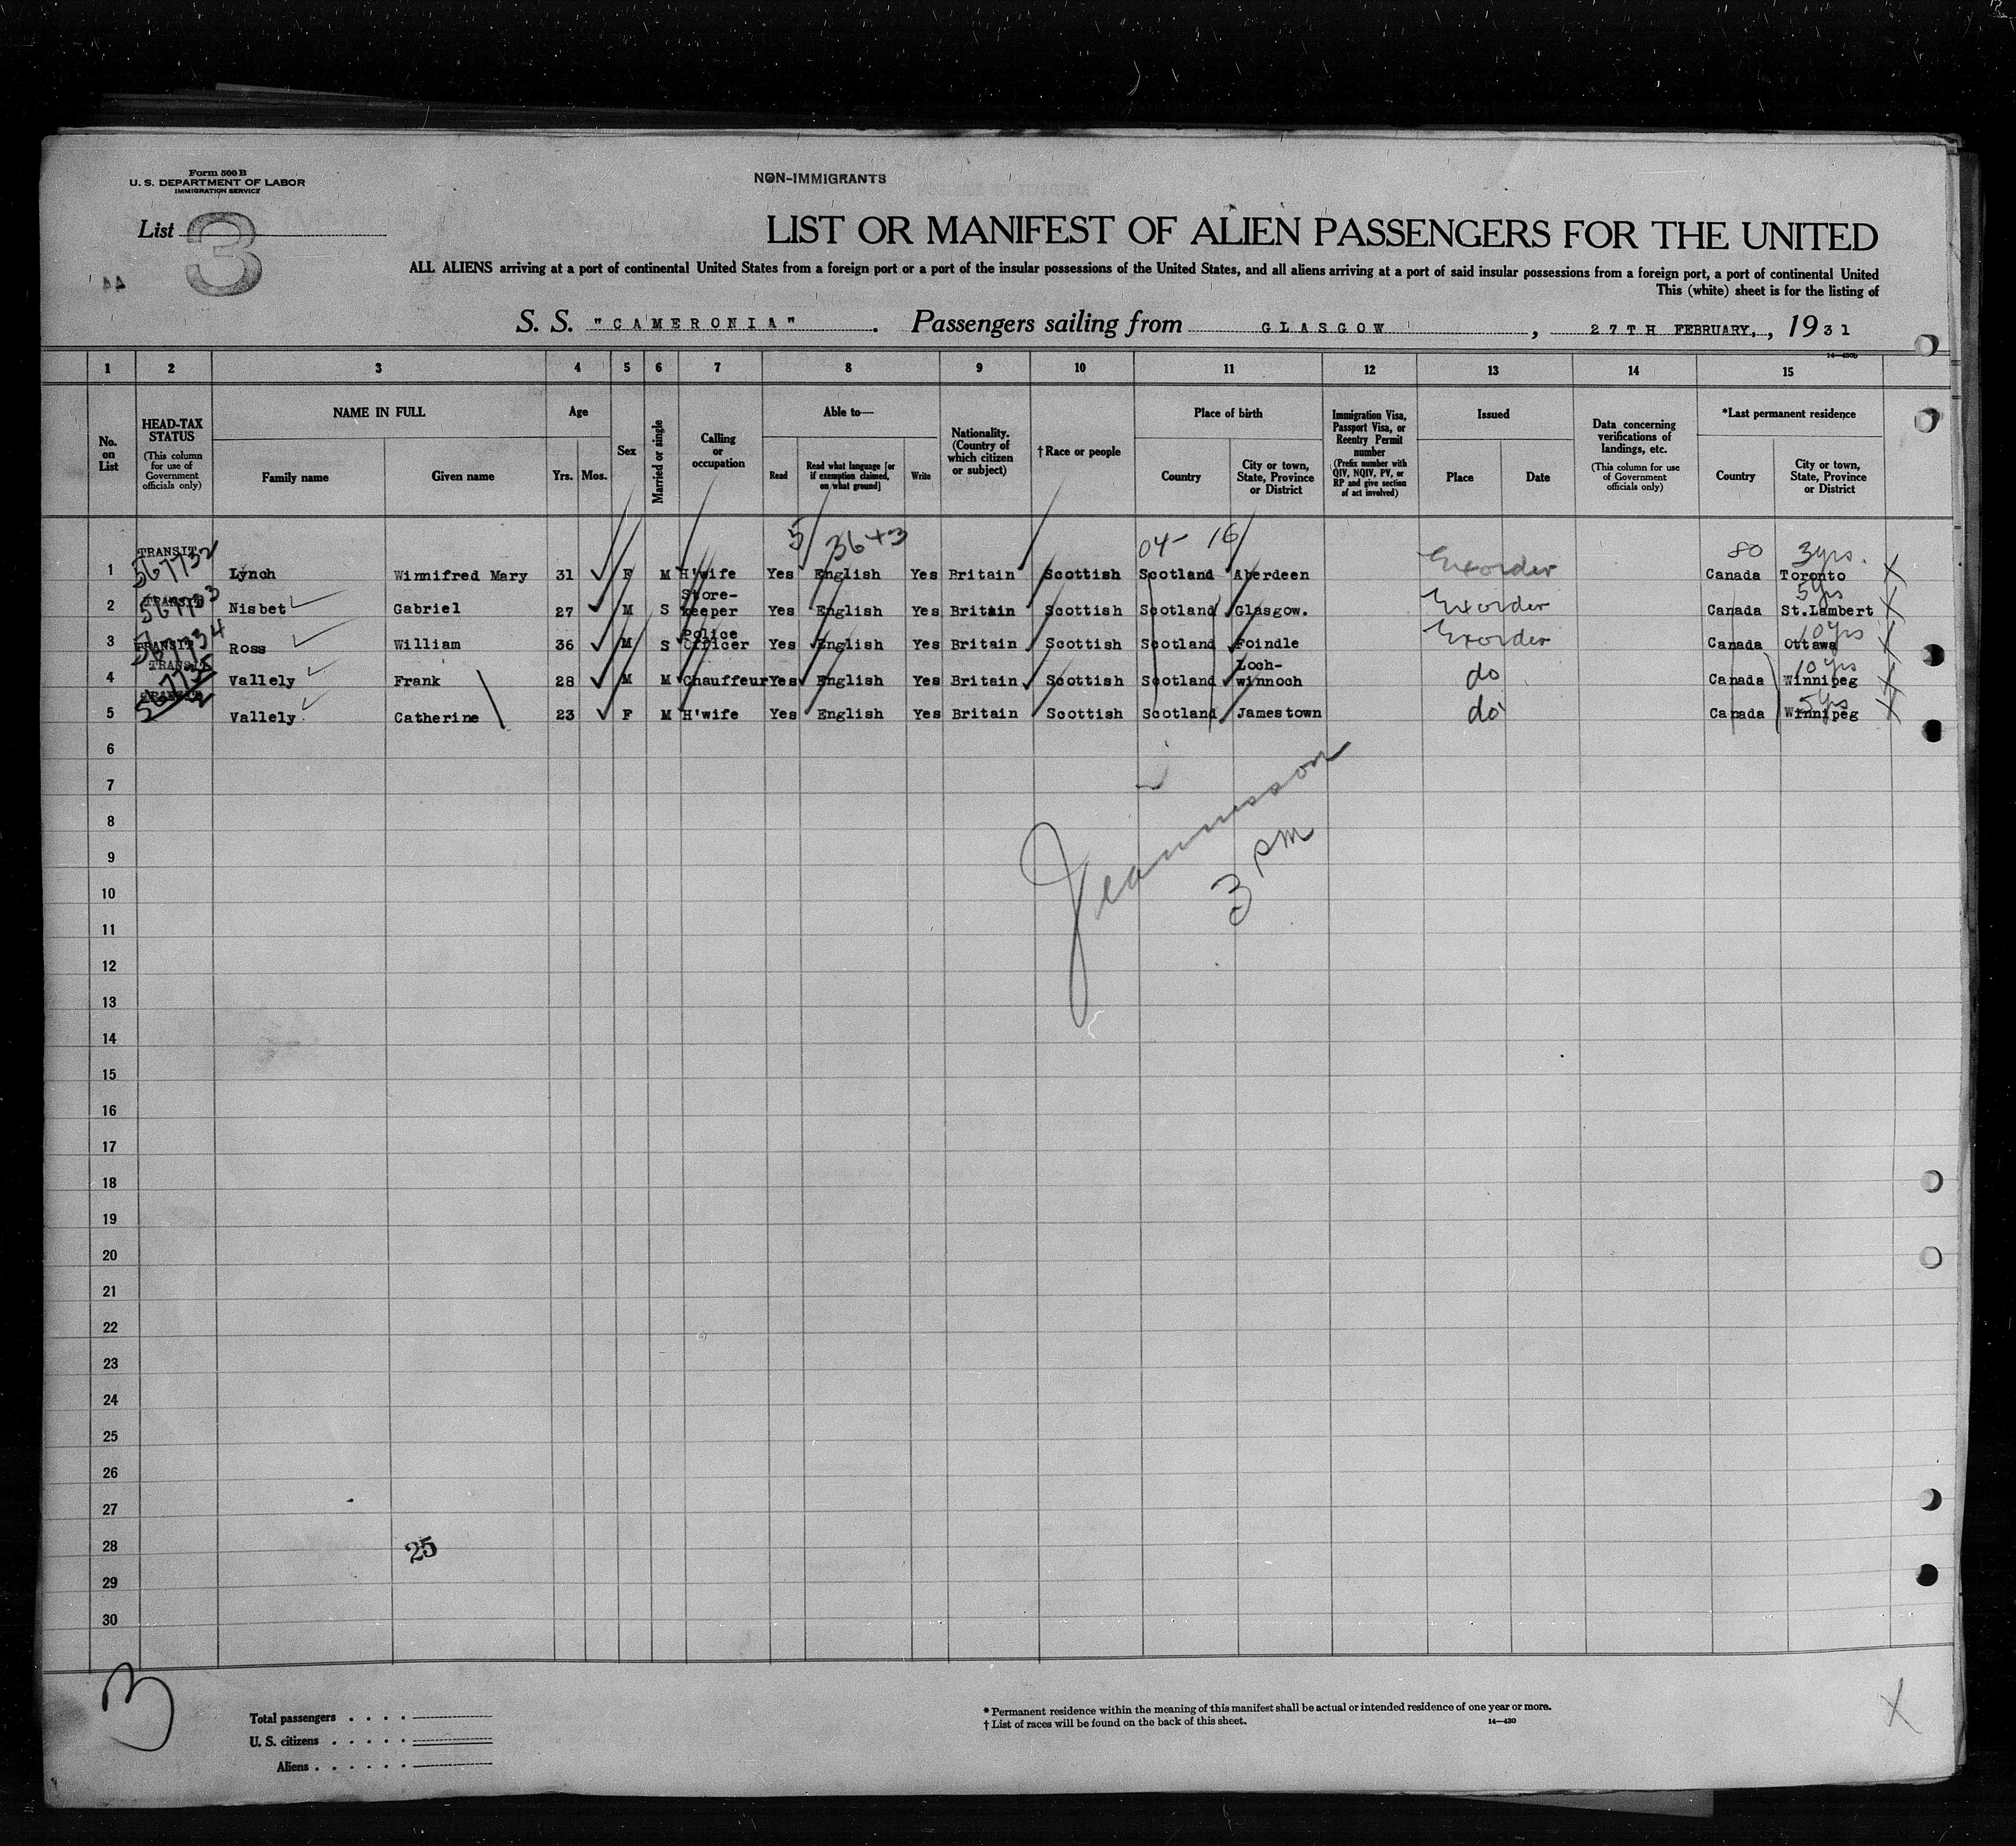 Form 500 B
U. S. DEPARTMENT OF LABOR
IMMIGRATION SERVICE
NON-IMMIGRANTS
List 3
LIST OR MANIFEST OF ALIEN PASSENGERS FOR THE UNITED
ALL ALIENS arriving at a port of continental United States from a foreign port or a port of the insular possessions of the United States, and all aliens arriving at a port of said insular possessions from a foreign port, a port of continental United
This (white) sheet is for the listing of
44
S. S. "CAMERONIA". Passengers sailing from GLASGOW, 27TH FEBRUARY, , 1931
14—430b
1 2 3 4 5 6 7 8 9 10 11 12 13 14 15
No. on List
HEAD-TAX STATUS (This column for use of Government officials only)
NAME IN FULL
Family name Given name
Age
Yrs. Mos.
Sex
Married or single
Calling or occupation
Able to—
Read Read what language [or if exemption claimed, on what ground] Write
Nationality. (Country of which citizen or subject)
† Race or people
Place of birth
Country City or town, State, Province or District
Immigration Visa, Passport Visa, or Reentry Permit number (Prefix number with QIV, NQIV, PV, or RP and give section of act involved)
Issued
Place Date
Data concerning verifications of landings, etc. (This column for use of Government officials only)
*Last permanent residence
Country City or town, State, Province or District
5 36+3 04- 16 80 3yrs.
1 TRANSIT 567732 Lynch Winnifred Mary 31 F M H'wife Yes English Yes Britain Scottish Scotland Aberdeen Exorder Canada Toronto X
2 TRANSIT 567733 Nisbet Gabriel 27 M S Store-keeper Yes English Yes Britain Scottish Scotland Glasgow. Exorder Canada 5yrs St.Lambert X
3 TRANSIT 567734 Ross William 36 M S Police Officer Yes English Yes Britain Scottish Scotland Foindle Exorder Canada 10yrs Ottawa X
4 TRANSIT 567735 Vallely Frank 28 M M Chauffeur Yes English Yes Britain Scottish Scotland Loch-winnoch do Canada 10yrs Winnipeg X
5 TRANSIT Vallely Catherine 23 F M H'wife Yes English Yes Britain Scottish Scotland Jamestown do Canada 5yrs Winnipeg X
6
7
8
9
3 pm
10
11
12
13
14
15
16
17
18
19
20
21
22
23
24
25
26
27
28 25
29
30
3
X
Total passengers . . . .
U. S. citizens . . . . .
Aliens . . . . . .
* Permanent residence within the meaning of this manifest shall be actual or intended residence of one year or more.
† List of races will be found on the back of this sheet.
14—430